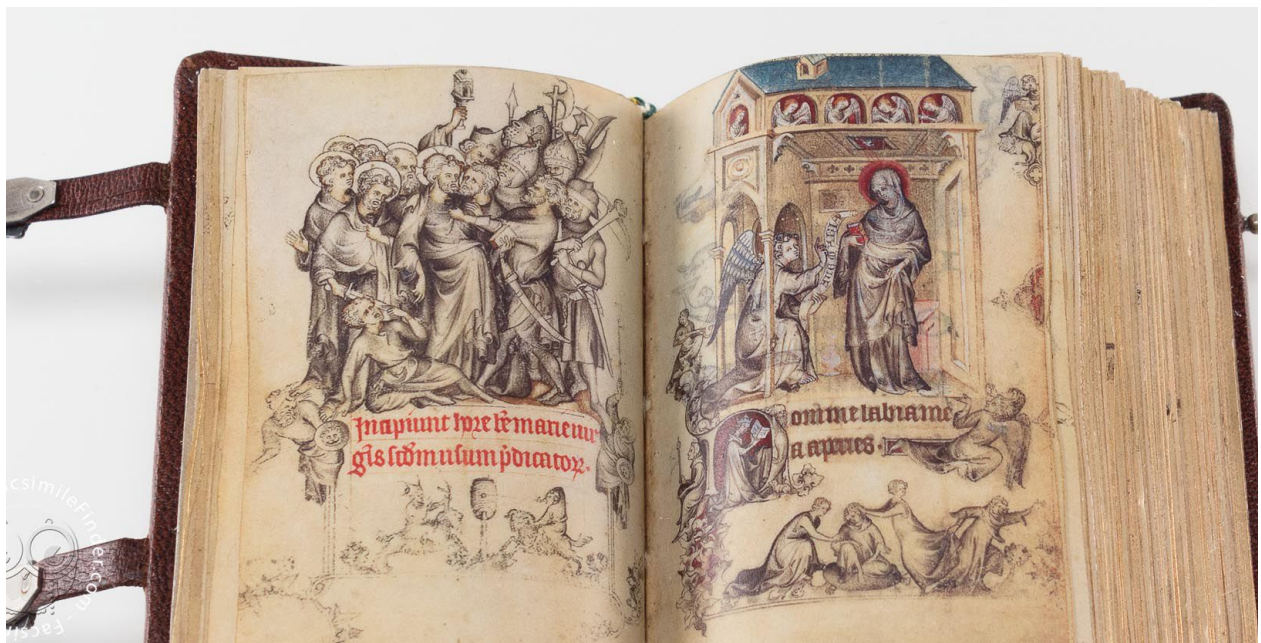 Incipiunt hore bẽ marie uir
gis scd̃m usum p̃dicatoꝝ.
omine labia me
a aperies.
csimileFinder.com - Facsi